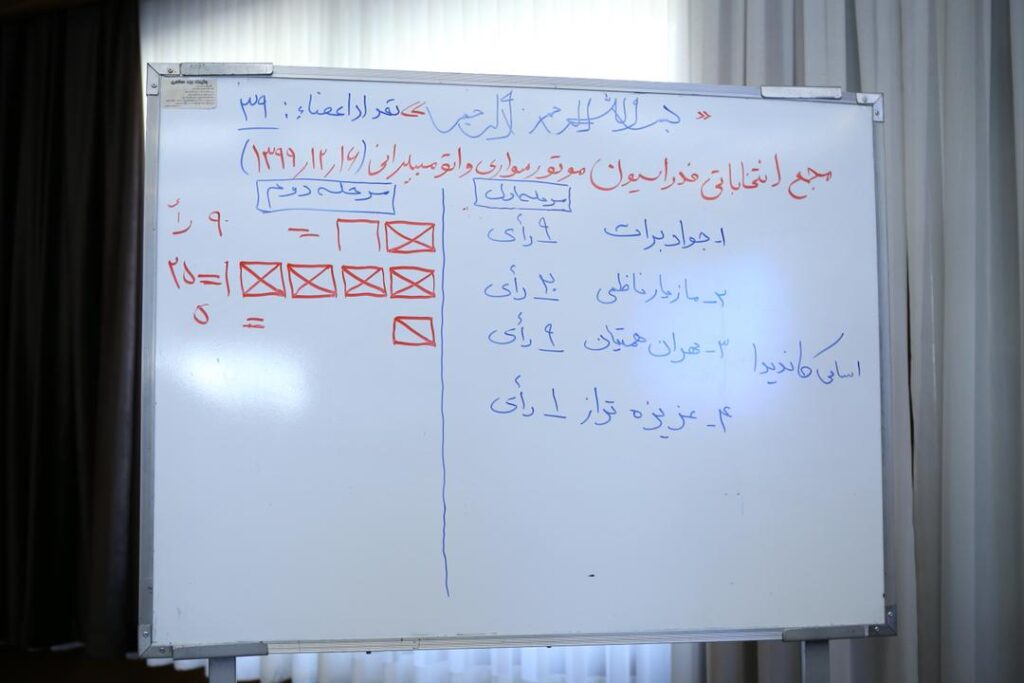 « بسم الله الرحمن الرحیم » تعداد اعضاء: ۳۹
مجمع انتخاباتی فدراسیون موتورسواری و اتومبیلرانی (۱۳۹۹,۱۲,۱۶)
مرحله اول
۱- جواد برات ۹ رأی
۲- مازیار ناظمی ۲۰ رأی
۳- مهران همتیان ۹ رأی
۴- عزیزه تراز ۱ رأی
اسامی کاندیدا
مرحله دوم
= ۹ رأ
=۲۵
= ۵